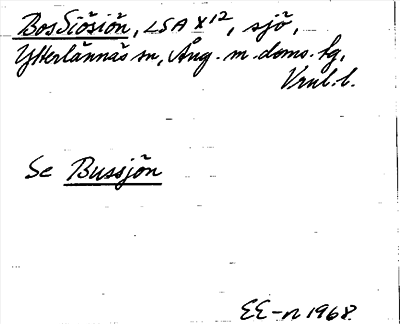 BosSiösiön, LSA X¹², sjö,
Ytterlännäs sn, Ång. m. doms. lg,
Vrul. l.
Se Bussjön
EE-n 1968.